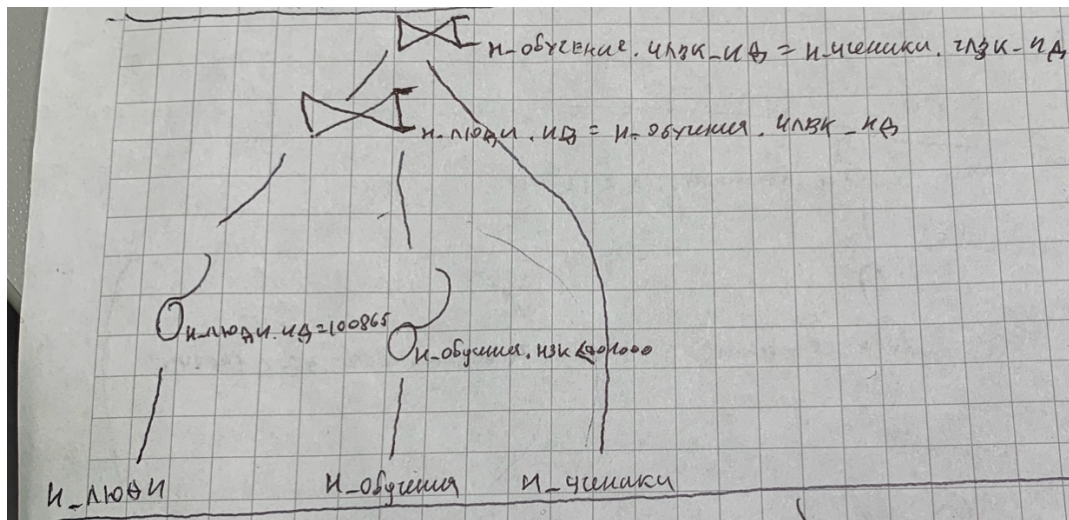 Н_обучение.ЧЛВК_ИД = Н_ученики.ЧЛВК_ИД
Н_люди.ИД = Н_обучения.ЧЛВК_ИД
Н_люди.ИД=100865
Н_обучения.НЗК <
Н_люди
Н_обучения
Н_ученики